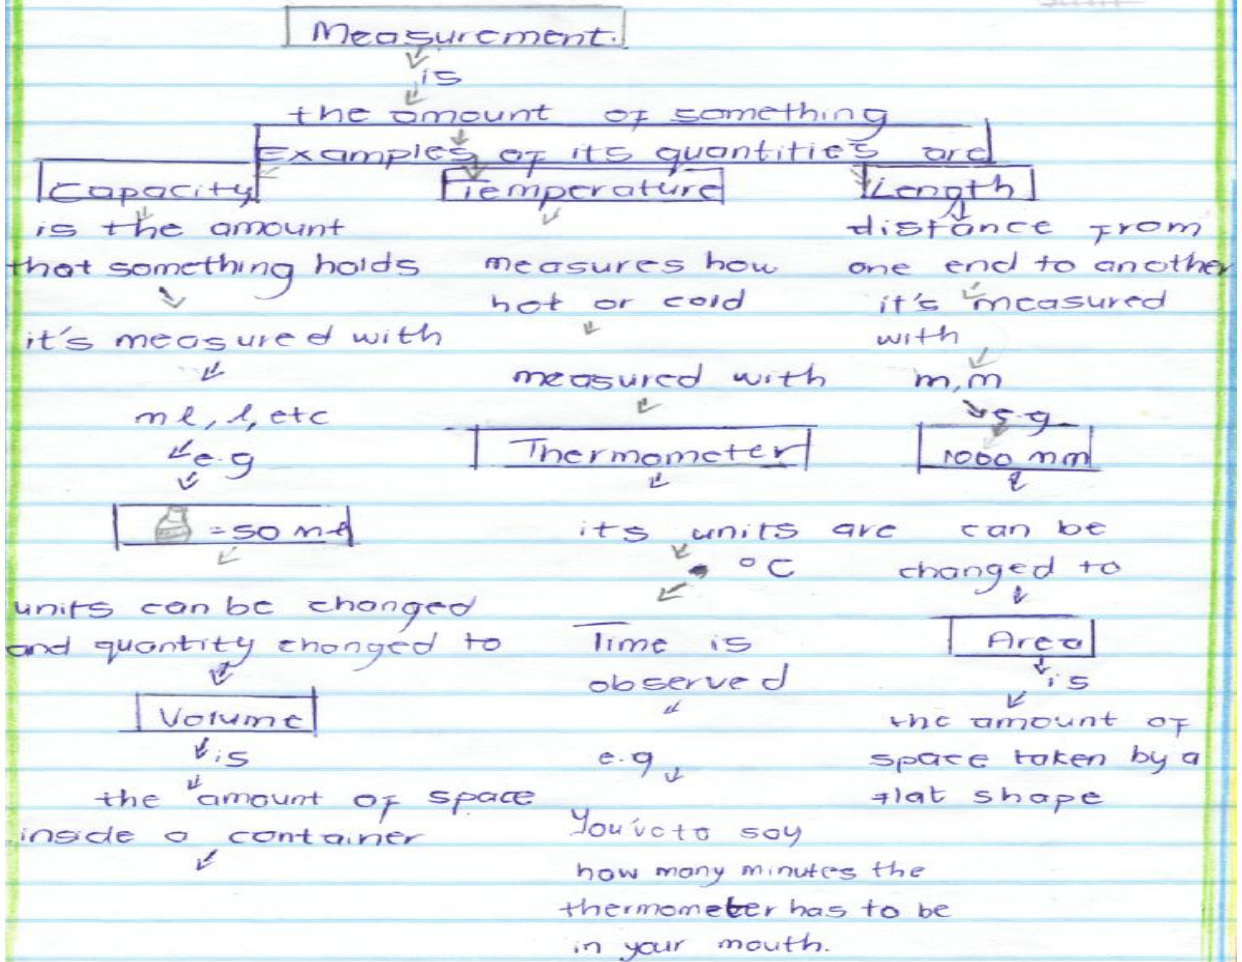 Measurement.
is
the amount of something
Examples of its quantities are
Capacity
is the amount
that something holds
it's measured with
ml, l, etc
e.g
= 50 ml
units can be changed
and quantity changed to
Volume
is
the amount of space
inside a container
Temperature
measures how
hot or cold
measured with
Thermometer
its units are
°C
Time is
observed
e.g
You've to say
how many minutes the
thermometer has to be
in your mouth.
Length
distance from
one end to another
it's measured
with
m, m
e.g
1000 mm
can be
changed to
Area
is
the amount of
space taken by a
flat shape